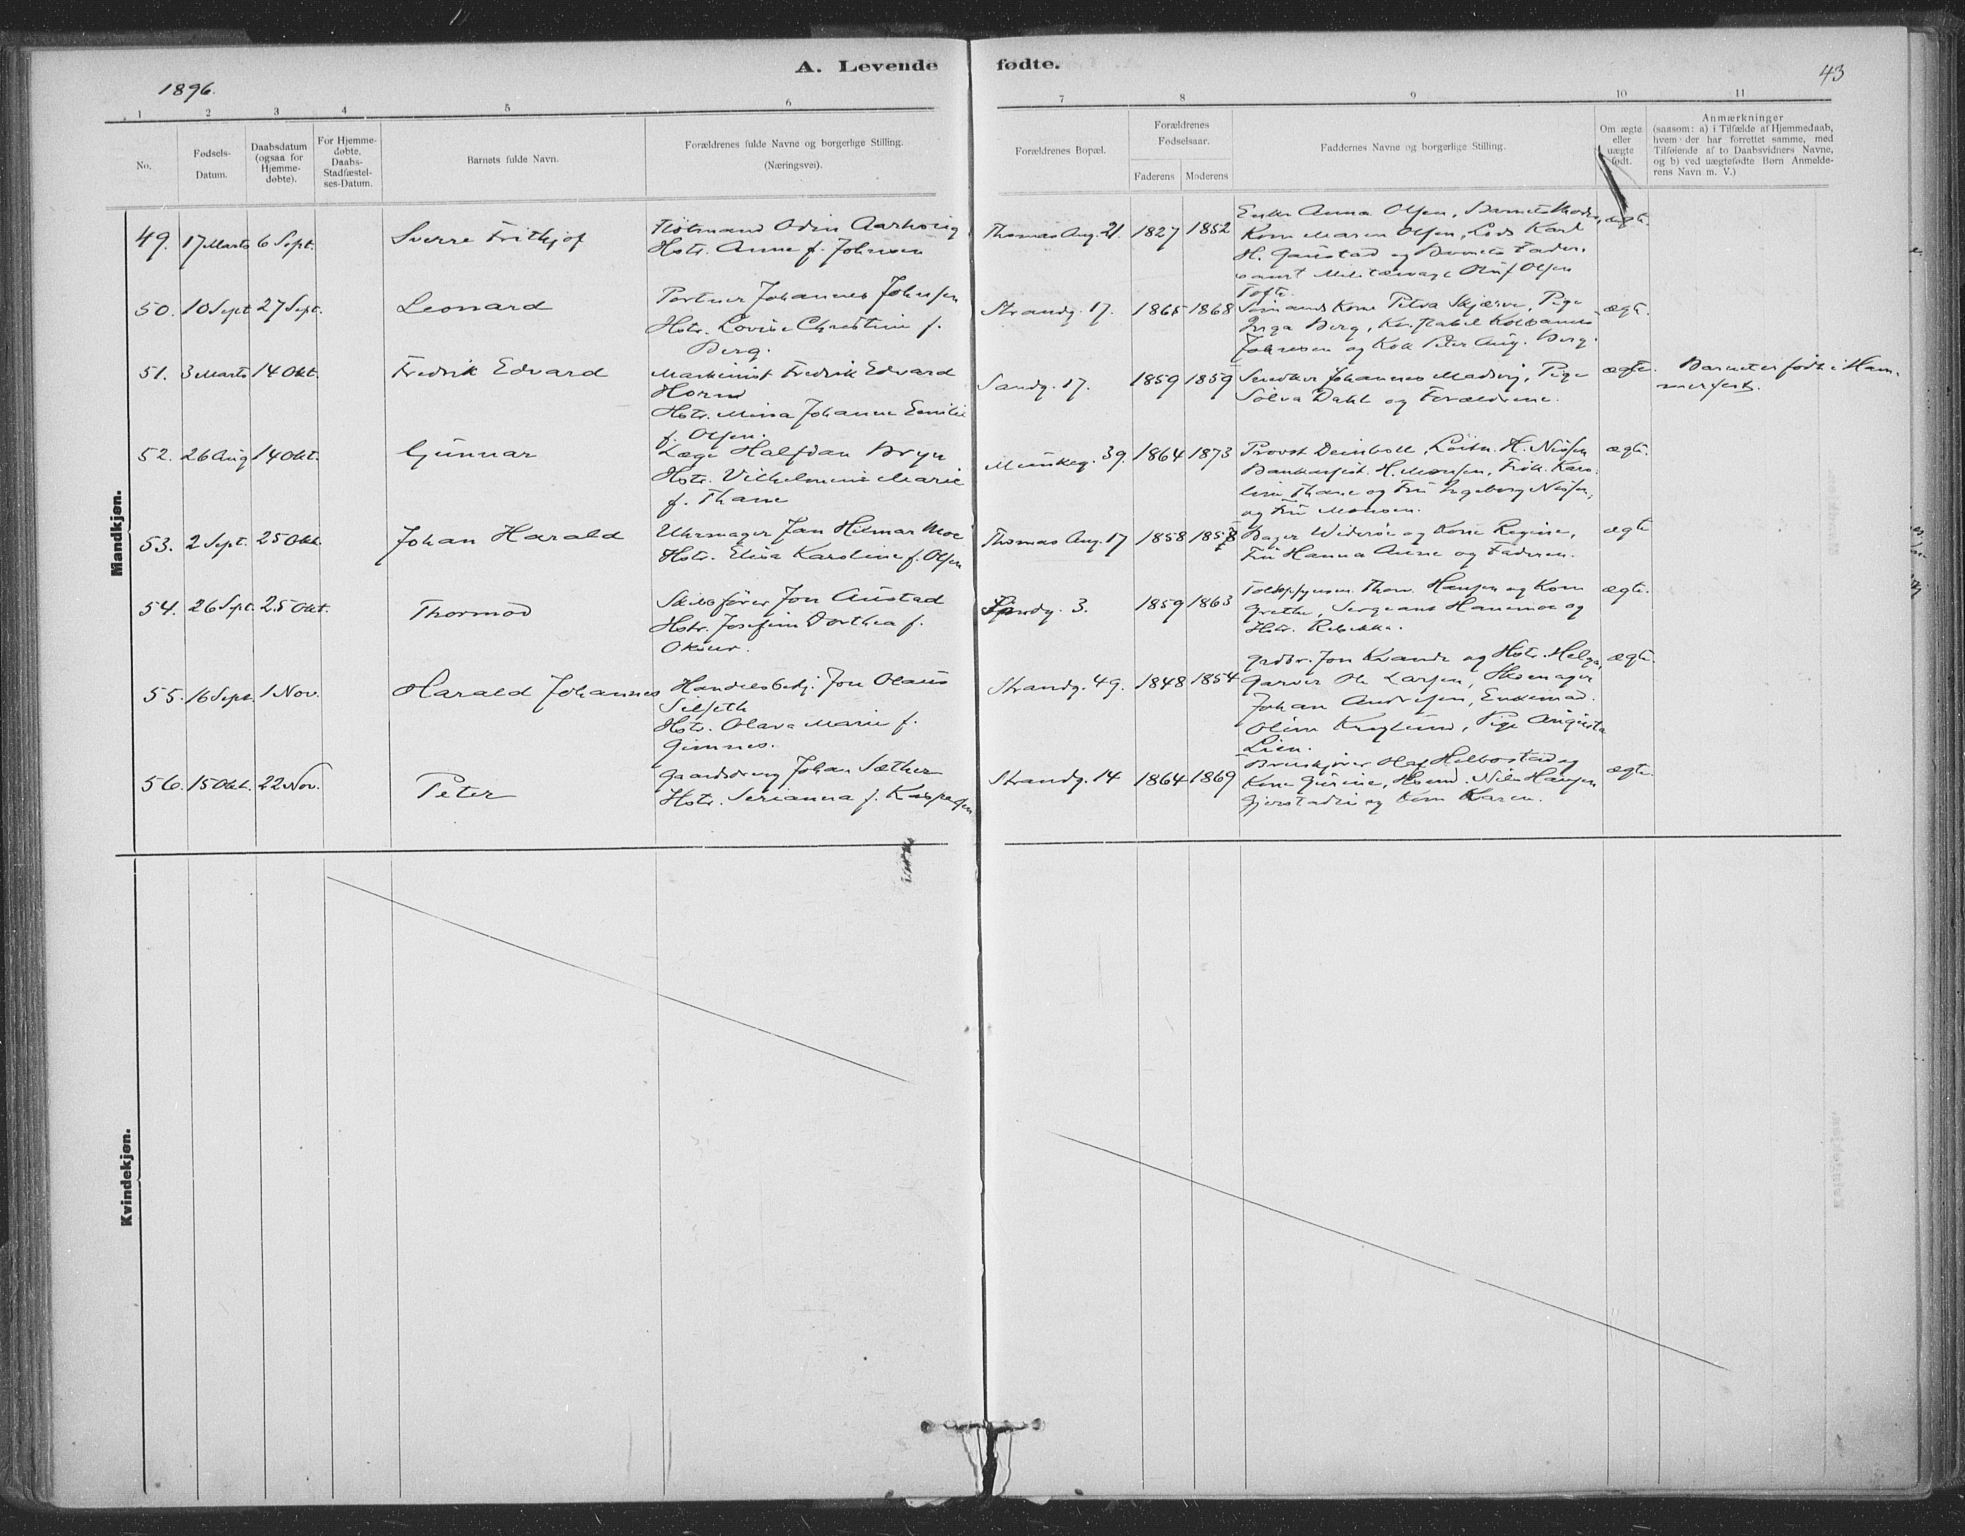 1896.
A. Levende fødte.
43
1 2 3 4 5 6 7 8 9 10 11
No.
Fødsels-
Datum.
Daabsdatum
(ogsaa for
Hjemme-
døbte).
For Hjemme-
døbte,
Daabs-
Stadfæstel-
ses-Datum.
Barnets fulde Navn.
Forældrenes fulde Navne og borgerlige Stilling.
(Næringsvei).
Forældrenes Bopæl.
Forældrenes
Fødselsaar.
Faderens Moderens
Faddernes Navne og borgerlige Stilling.
Om ægte
eller
uægte
født.
Anmærkninger
(saasom: a) i Tilfælde af Hjemmedaab,
hvem der har forrettet samme, med
Tilføiende af to Daabsvidners Navne,
og b) ved uægtefødte Børn Anmelde-
rens Navn m. V.)
Mandkjøn.
49. 17 Marts 6 Sept. Sverre Frithjof
Odin Aarhoug
Hstr. Anne f. Johnsen
Thomas Aug. 21. 1827 1852
Enke Anna Olsen, Barnets Moder,
Kone Maren Olsen, Lods Karl
H. Gaustad og Barnets Fader.
samt Militærvagt Oluf Olsen
Tofte.
ægte
50. 10 Sept 27 Sept. Leonard
Portner Johannes Johnsen
Hstr. Lovise Christine f.
Berg.
Strandg. 17. 1865 1868
Sømands Kone Petra Skjærve, Pige
Inga Berg,
Johnsen og Peter Aug. Berg.
ægte.
51. 3 Marts 14 Okt. Fredrik Edvard
Maskinist Fredrik Edvard
Horn
Hstr. Mina Johanne Emilie
f. Olsen.
Sandg. 17. 1859 1859
Snedker Johannes Madsvig, Pige
Solva Dahl og Forældrene.
ægte.
Barnet er født i Ham-
merfest.
52. 26 Aug 14 Okt. Gunnar
Læge Halfdan Bryn
Hstr. Vilhelmine Marie
f. Thane
Munkeg. 39. 1864 1873
Provst Deinboll, Løitn. H. Nissen
H. Monsen, Frøk. Karo-
line Thane og Fru Ingeborg Nissen,
og Fru Monsen.
ægte.
53. 2 Sept. 25 Okt. Johan Harald
Uhrmager Jan Hilmar Moe
Hstr. Elisa Karoline f. Olsen
Thomas Aug. 17 1858 1857
Bager Widerøe og Kone Regine,
Fru Hanna Aune og Faderen.
ægte
54. 26 Sept. 25 Okt. Thormod
Skibsfører Jon Austad
Hstr. Josefine Dorthea f.
Sandg. 3. 1859 1863
Thorv. Hansen og Kone
Grethe, Sergeant Hanemoe og
Hstr. Rebekka.
ægte.
55. 16 Sept. 1 Nov. Harald Johannes
Handelsbetj. Jon Olaus
Selseth
Hstr. Olava Marie f.
Gimnes.
Strandg. 49. 1848 1854
Grdbr. Jon Kvande og Hstr. Helga,
Garver Ole Larsen, Skomager
Johan Andresen, Enkemad.
Oline Kroglund, Pige Augusta
Lien.
ægte.
56. 15 Okt. 22 Nov. Peter
Gaardsdreng Johan Sæther
Hstr. Serianna f. Kaspersen
Strandg. 14 1864 1869
Olaf Helbostad og
Kone Gurine, Nils Hansen
og Kone Karen.
ægte.
Kvindekjøn.